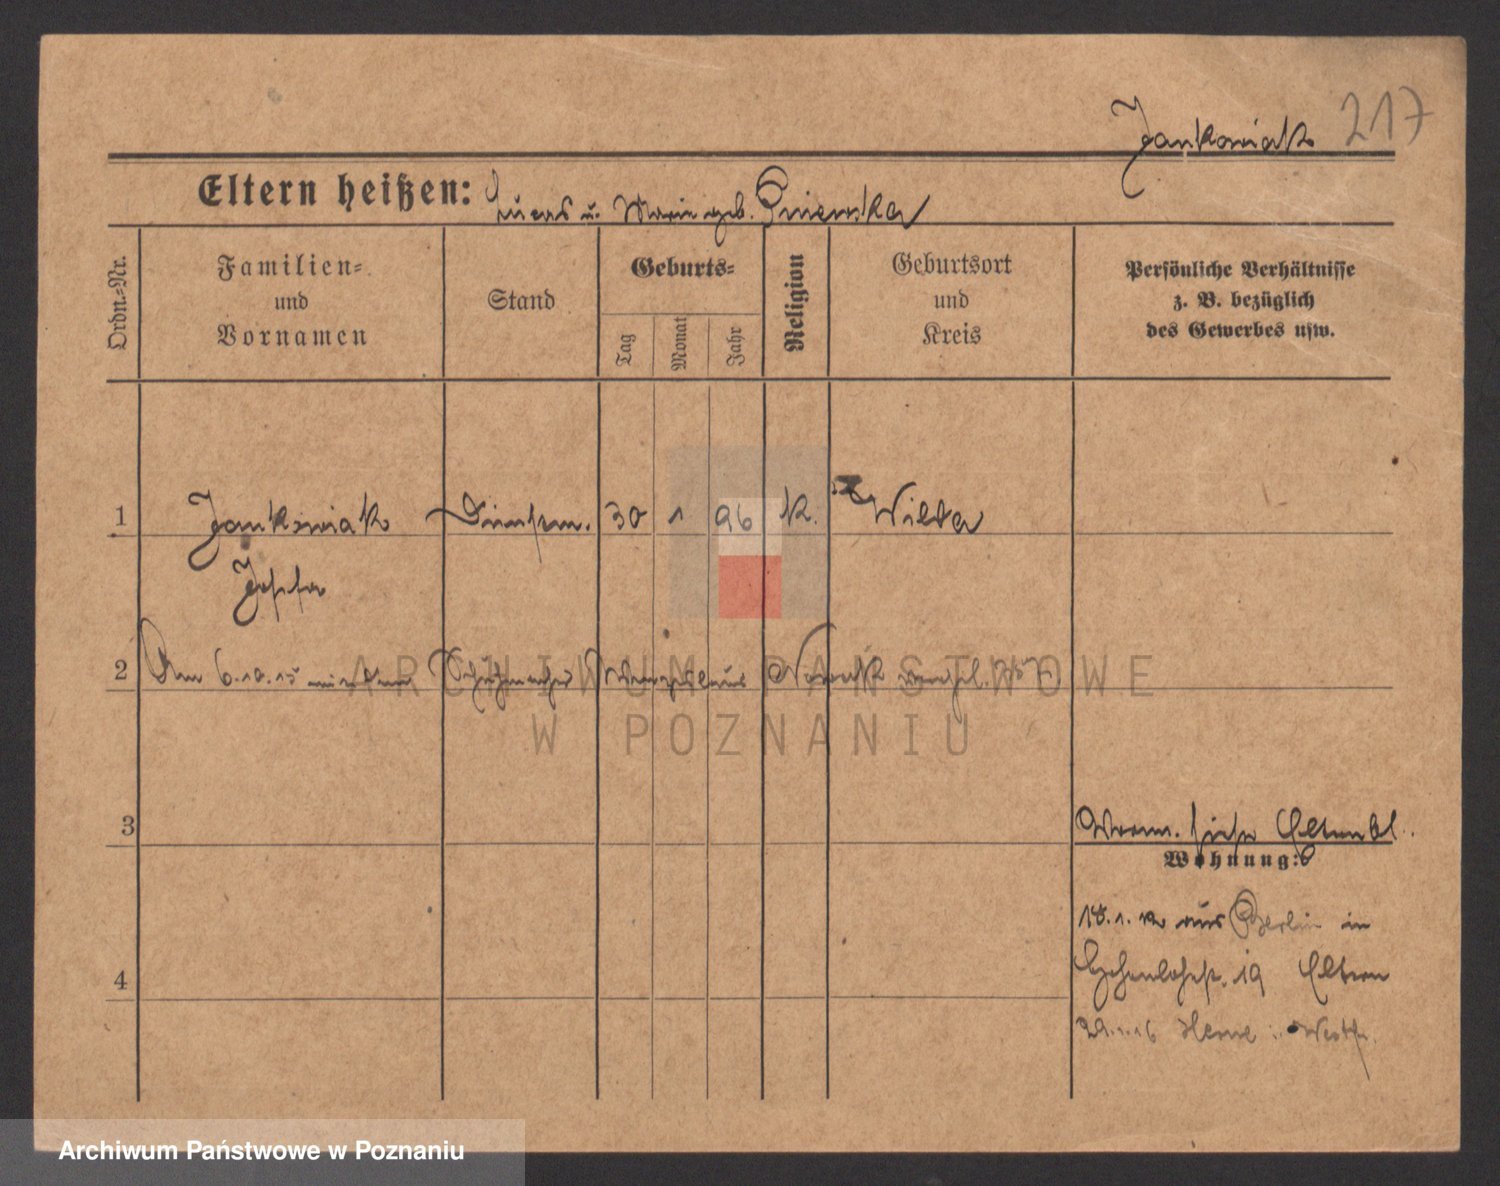 Jankowiak 217
Eltern heißen: Lucas u. Marie geb.
Ordn.=Nr.
Familien=
und
Vornamen
Stand
Geburts=
Tag
Monat
Jahr
Religion
Geburtsort
und
Kreis
Persönliche Verhältnisse
z. B. bezüglich
des Gewerbes usw.
1 Jankowiak Dienstm. 30 1 96 K. Wilda
Josefa
2 Am 6.10.15 mit dem Schuhmacher aus verehel.
ARCHIWUM PAŃSTWOWE
W POZNANIU
3
Worm. siehe Elternbl.
Wohnung:
18.1.12 aus Berlin in
4
Hohenlohestr. 19 Eltern
29.1.16 Herne i. Westf.
Archiwum Państwowe w Poznaniu